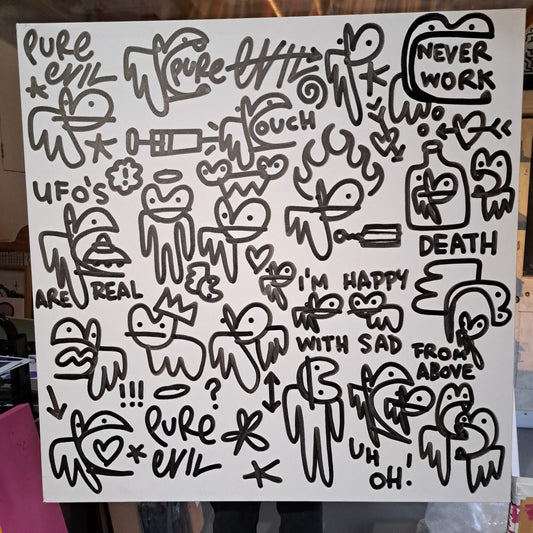 PURE
EVIL
PURE EVIL
NEVER
WORK
OUCH
!
UFO'S
ARE REAL
DEATH
FROM
ABOVE
I'M HAPPY
WITH SAD
!!!
?
PURE
EVIL
UH
OH!